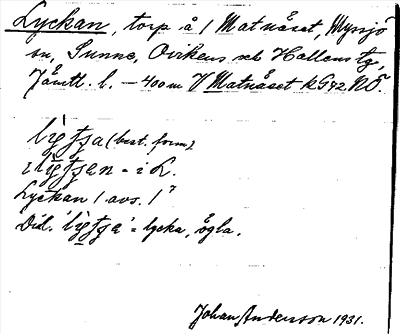 Lyckan, torp å 1 Matnåset, Myssjö
sn, Sunne, Ovikens och Hallens tg,
Jämtl. l. – 400 m V Matnåset kG42 NÖ.
(best. form)
= i L.
Lyckan 1 avs. 1
Dial. = lycka, ögla.
Johan Andersson 1931.